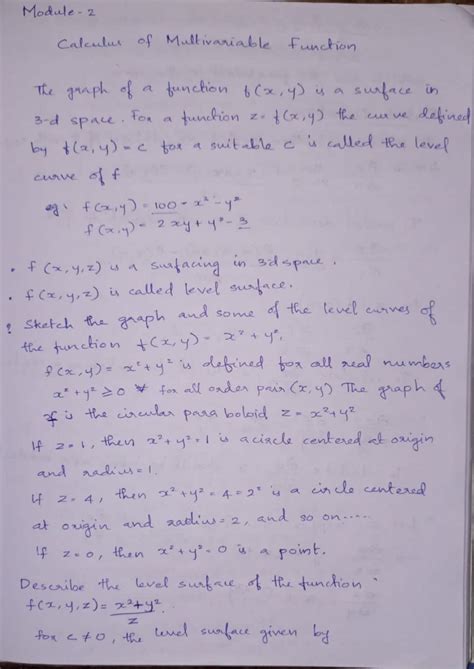 Module - 2
Calculus of Multivariable Function
The graph of a function f(x,y) is a surface in
3-d space. For a function z = f(x,y) the curve defined
by f(x,y) = c for a suitable c is called the level
curve of f
eg: f(x,y) = 100 - x² - y²
f(x,y) = 2xy + y² - 3
• f(x,y,z) is a surfacing in 3d space.
• f(x,y,z) is called level surface.
? Sketch the graph and some of the level curves of
the function f(x,y) = x² + y².
f(x,y) = x² + y² is defined for all real numbers
x² + y² ≥ 0 ∀ for all order pair (x,y) The graph of
f is the circular paraboloid z = x² + y²
If z = 1, then x² + y² = 1 is a circle centered at origin
and radius = 1.
If z = 4, then x² + y² = 4 = 2² is a circle centered
at origin and radius = 2, and so on.....
If z = 0, then x² + y² = 0 is a point.
Describe the level surface of the function
f(x,y,z) = x² + y² / z
for c ≠ 0, the level surface given by